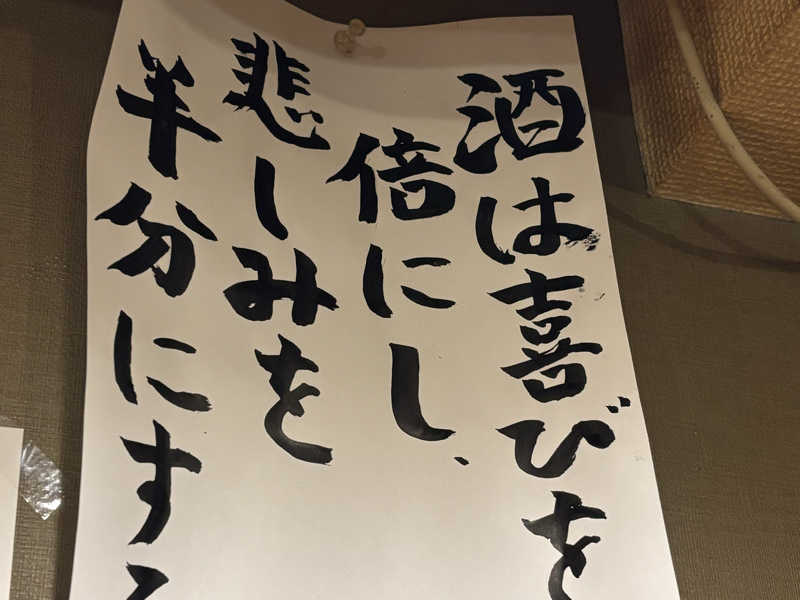 酒は喜びを
倍にし、
悲しみを
半分にする